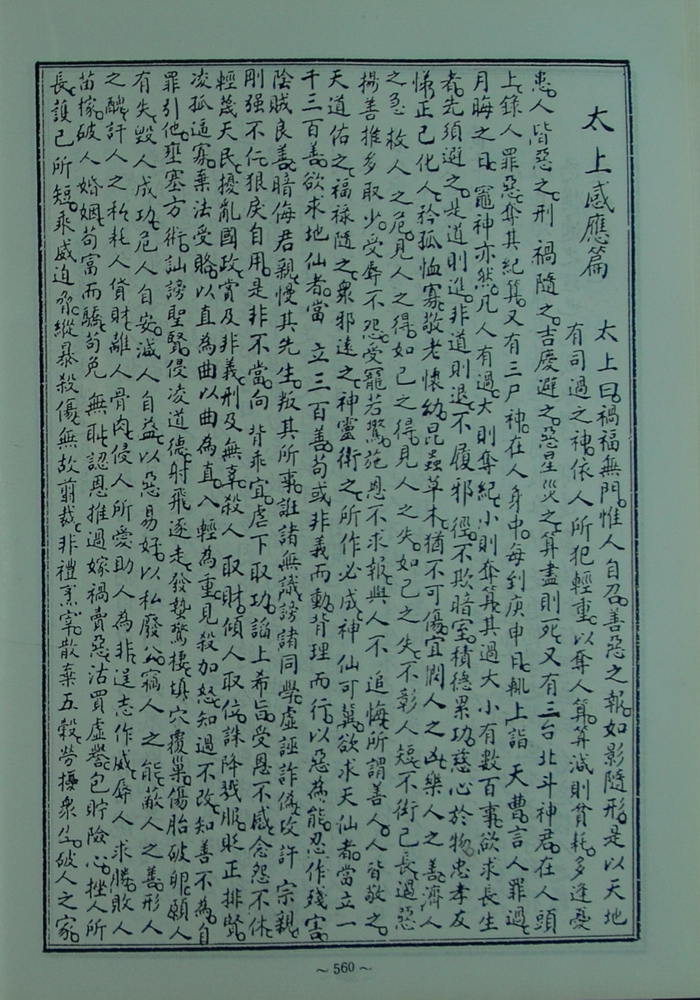 太上感應篇
太上曰。禍福無門。惟人自召。善惡之報。如影隨形。是以天地
有司過之神。依人所犯輕重。以奪人算。算減則貧耗。多逢憂
患。人皆惡之。刑禍隨之。吉慶避之。惡星災之。算盡則死。又有三台北斗神君。在人頭
上。錄人罪惡。奪其紀算。又有三尸神。在人身中。每到庚申日。輒上詣天曹。言人罪過。
月晦之日。竈神亦然。凡人有過。大則奪紀。小則奪算。其過大小。有數百事。欲求長生
者。先須避之。是道則進。非道則退。不履邪徑。不欺暗室。積德累功。慈心於物。忠孝友
悌。正己化人。矜孤恤寡。敬老懷幼。昆蟲草木。猶不可傷。宜憫人之凶。樂人之善。濟人
之急。救人之危。見人之得。如己之得。見人之失。如己之失。不彰人短。不衒己長。遏惡
揚善。推多取少。受辱不怨。受寵若驚。施恩不求報。與人不追悔。所謂善人。人皆敬之。
天道佑之。福祿隨之。衆邪遠之。神靈衛之。所作必成。神仙可冀。欲求天仙者。當立一
千三百善。欲求地仙者。當立三百善。苟或非義而動。背理而行。以惡為能。忍作殘害。
陰賊良善。暗侮君親。慢其先生。叛其所事。誑諸無識。謗諸同學。虛誣詐偽。攻訐宗親。
剛强不仁。狠戾自用。是非不當。向背乖宜。虐下取功。諂上希旨。受恩不感。念怨不休。
輕蔑天民。擾亂國政。賞及非義。刑及無辜。殺人取財。傾人取位。誅降戮服。貶正排賢。
凌孤逼寡。棄法受賂。以直為曲。以曲為直。入輕為重。見殺加怒。知過不改。知善不為。自
罪引他。壅塞方術。訕謗聖賢。侵凌道德。射飛逐走。發蟄驚棲。填穴覆巢。傷胎破卵。願人
有失。毀人成功。危人自安。減人自益。以惡易好。以私廢公。竊人之能。蔽人之善。形人
之醜。訐人之私。耗人貨財。離人骨肉。侵人所愛。助人為非。逞志作威。辱人求勝。敗人
苗稼。破人婚姻。苟富而驕。苟免無恥。認恩推過。嫁禍賣惡。沽買虛譽。包貯險心。挫人所
長。護己所短。乘威迫脅。縱暴殺傷。無故剪裁。非禮烹宰。散棄五穀。勞擾衆生。破人之家。
~ 560 ~